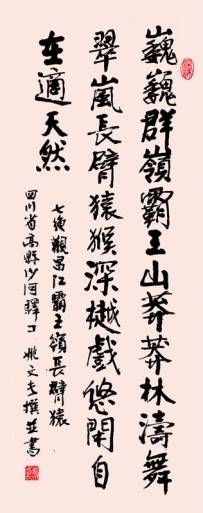 巍巍群嶺霸王山莽莽林濤舞
翠嵐長臂猿猴深樾戲悠閑自
在適天然
七絕觀昌江霸王嶺長臂猿
四川省高縣沙河驛丁姚文長撰並書